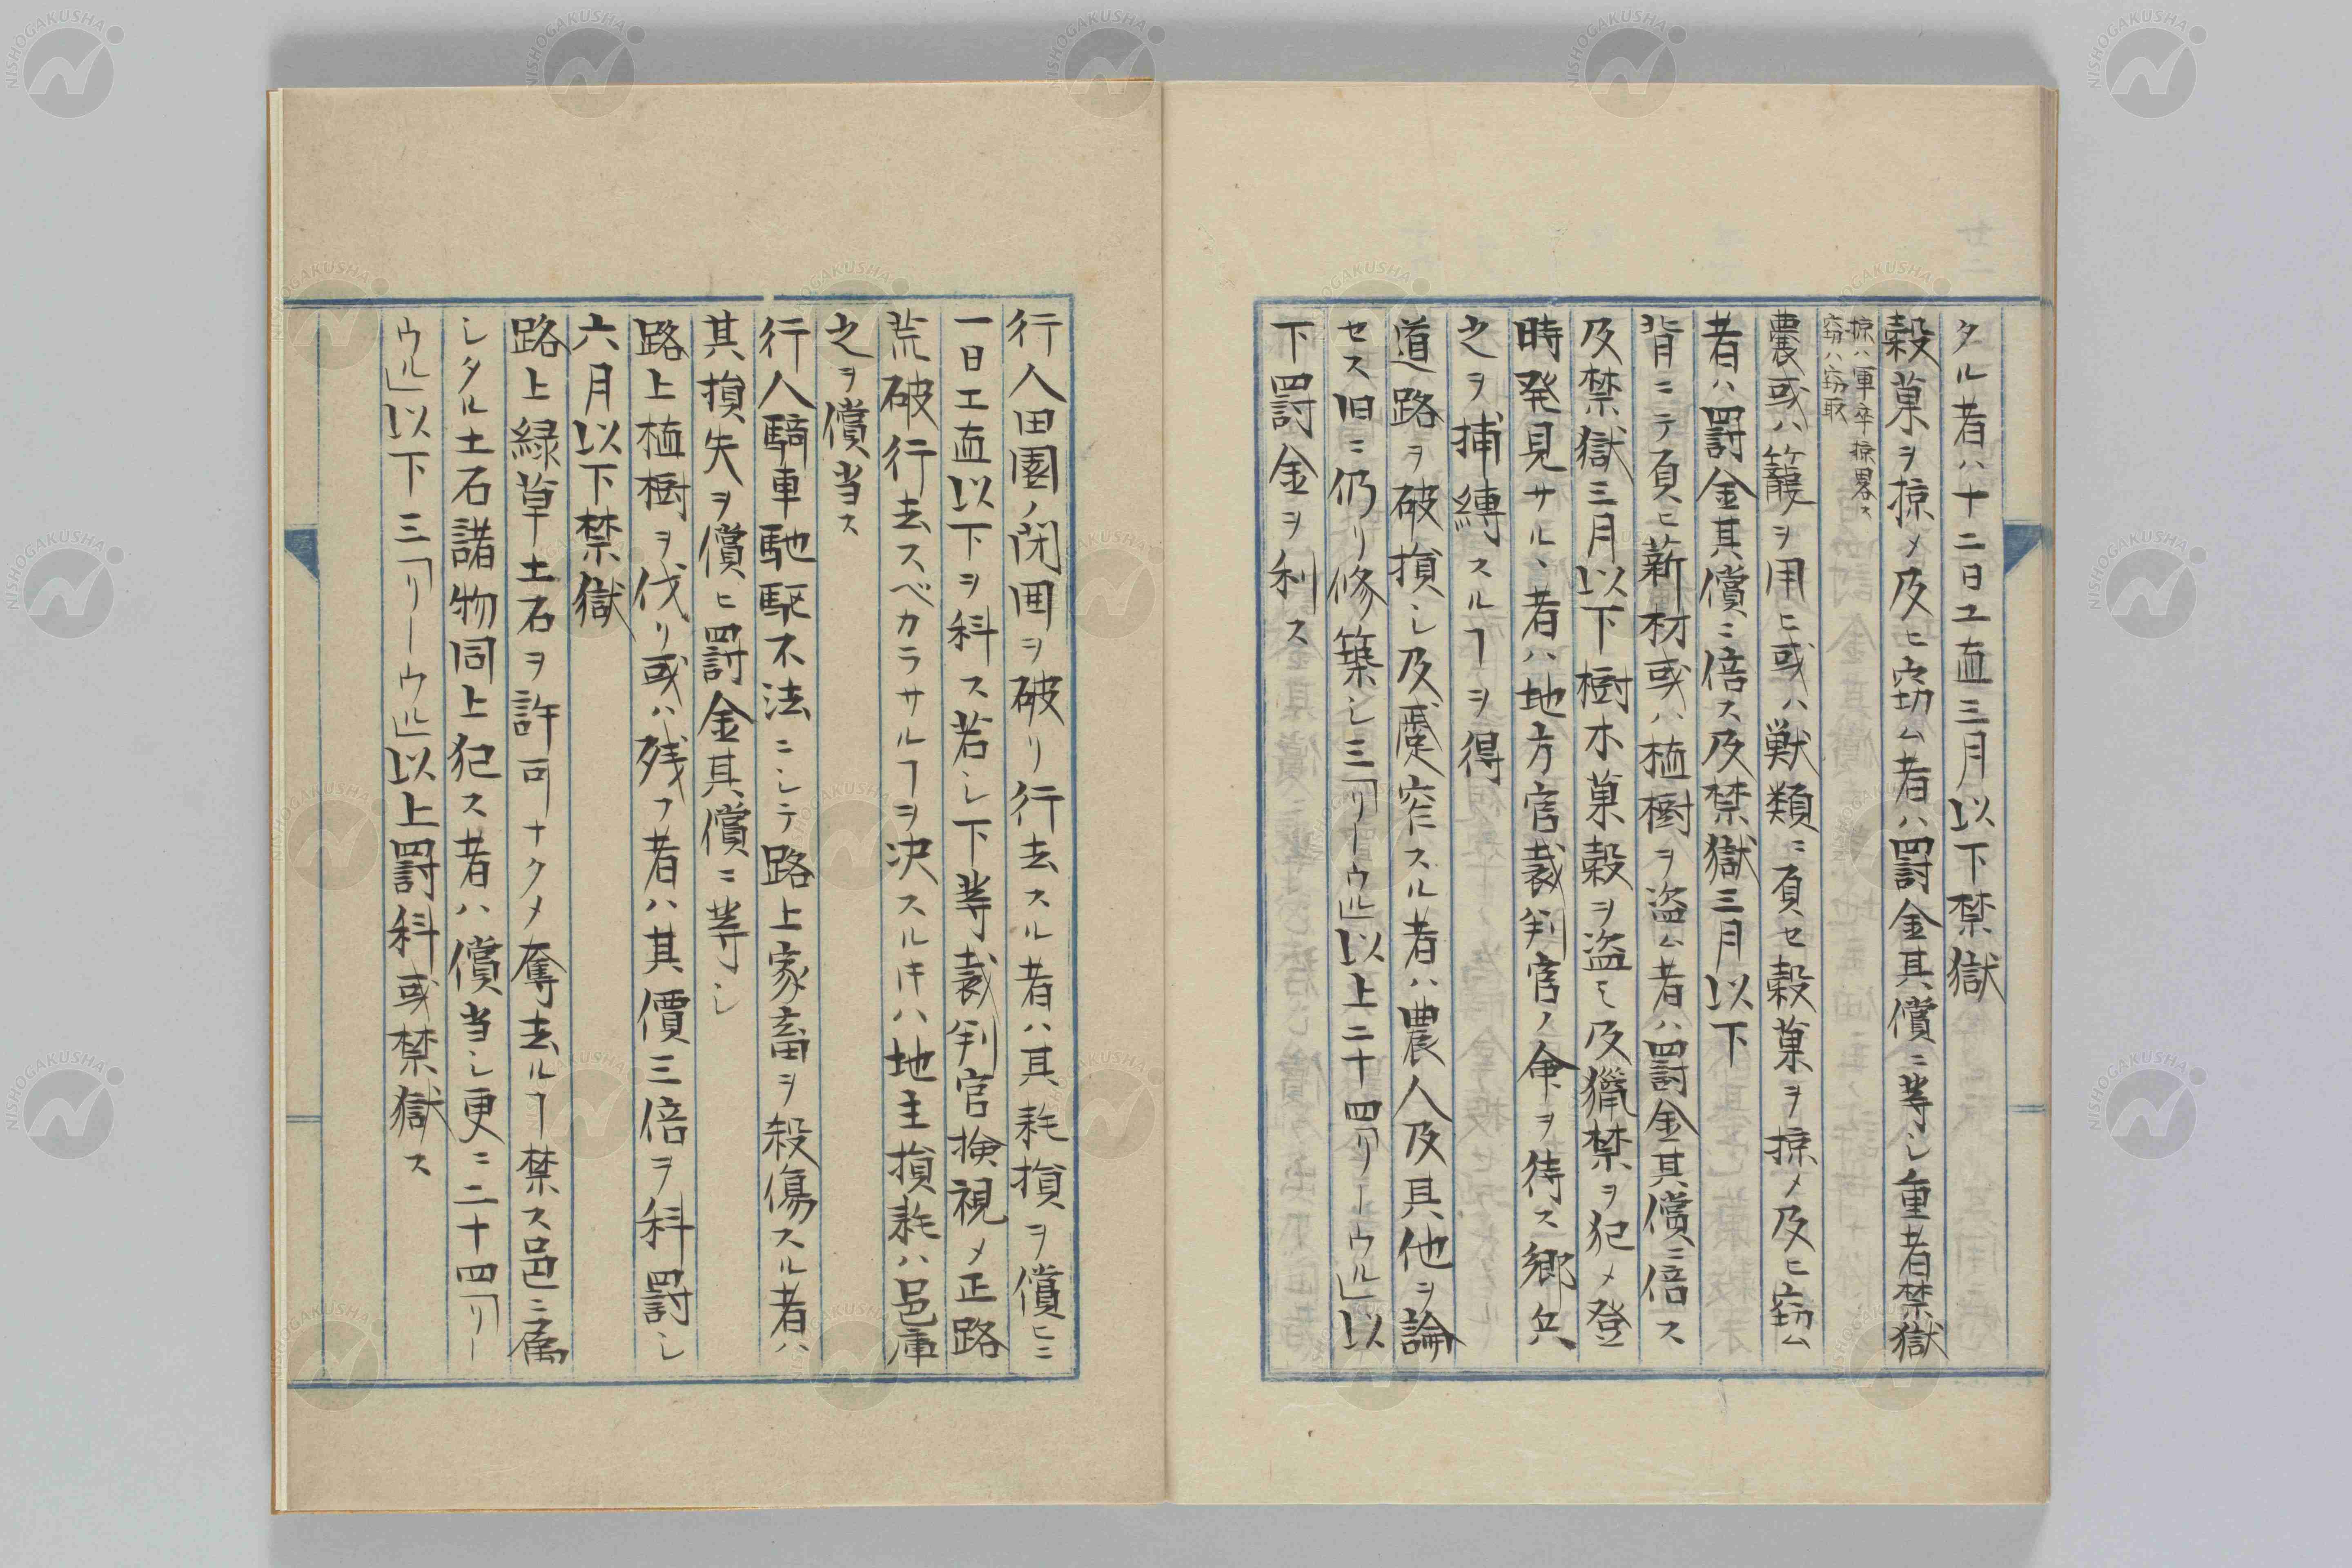 タル者ハ十二日工直三月以下禁獄
穀菓ヲ掠メ及ヒ窃ム者ハ罰金其償ニ等シ重者禁獄
掠ハ軍卒掠畧ス
窃ハ窃取
農或ハ籠ヲ用ヒ或ハ獣類ニ負セ穀菓ヲ掠メ及ヒ窃ム
者ハ罰金其償ニ倍ス及禁獄三月以下
背ニテ負ヒ薪材或ハ植樹ヲ盗ム者ハ罰金其償ニ倍ス
及禁獄三月以下樹木菓穀ヲ盗モ及獵禁ヲ犯メ登
時発見サル、者ハ地方官裁判官ノ命ヲ待ス郷兵
之ヲ捕縛スルヿヲ得
道路ヲ破損シ及蹙窄スル者ハ農人及其他ヲ論
セス旧ニ仍リ修築シ三「リーウル」以上二十四「リーウル」以
下罰金ヲ利ス
行人田園ノ閉囲ヲ破リ行去スル者ハ其耗損ヲ償ヒ三
一日工直以下ヲ科ス若シ下等裁判官検視メ正路
荒破行去スベカラサルヿヲ决スルキハ地主損耗ハ邑庫
之ヲ償当ス
行人騎車馳駆不法ニシテ路上家畜ヲ殺傷スル者ハ
其損失ヲ償ヒ罰金其償ニ等シ
路上植樹ヲ伐リ或ハ残フ者ハ其價三倍ヲ科罰シ
六月以下禁獄
路上緑草土石ヲ許可ナクメ奪去ルヿ禁ス邑ニ属
シタル土石諸物同上犯ス者ハ償当シ更ニ二十四「リー
ウル」以下三「リーウル」以上罰科或禁獄ス
NISHOGAKUSHA